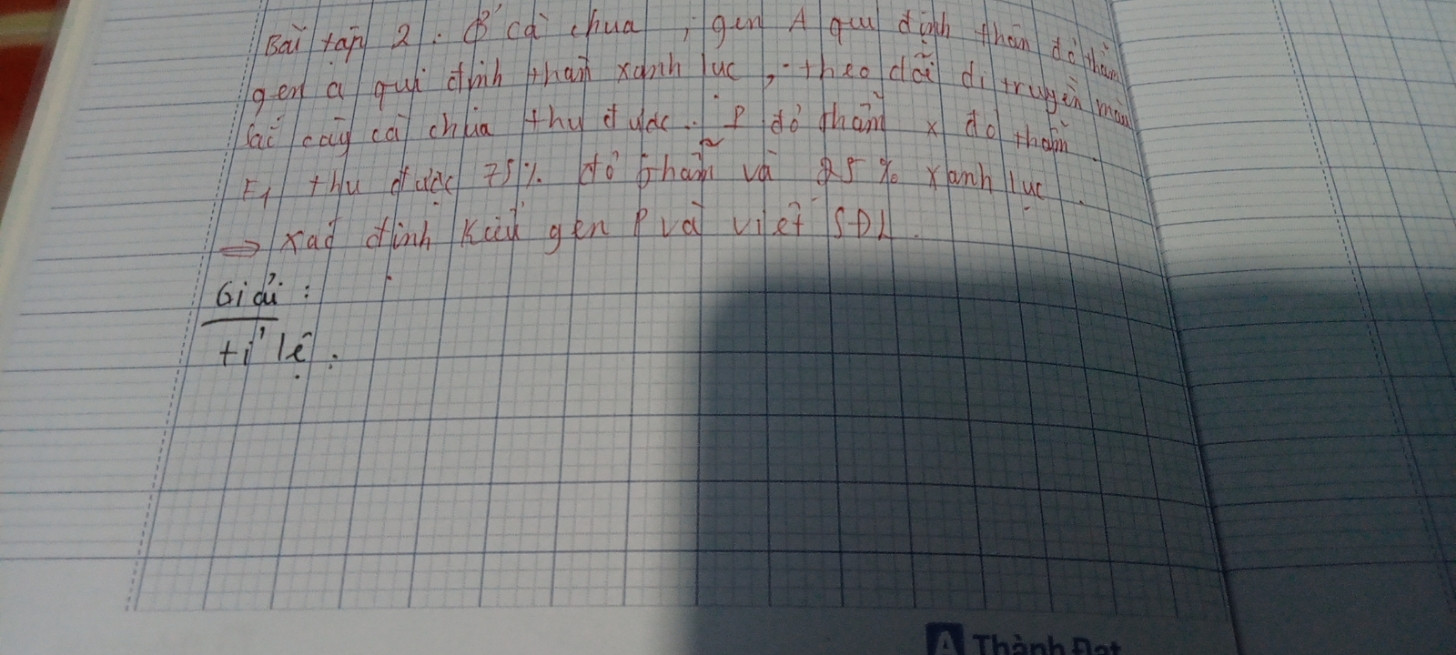 Bài tập 2 : Ở cà chua , gen A qui định thân đỏ thẫm
gen a qui định thân xanh lục , theo dõi di truyền màu
sắc cây cà chua thu được : P đỏ thẫm x đỏ thẫm
F1 thu được 75% đỏ thẫm và 25 % xanh lục .
⇒ xác định kiểu gen P và viết SĐL .
Giải :
tỉ lệ :
A Thành Đạt